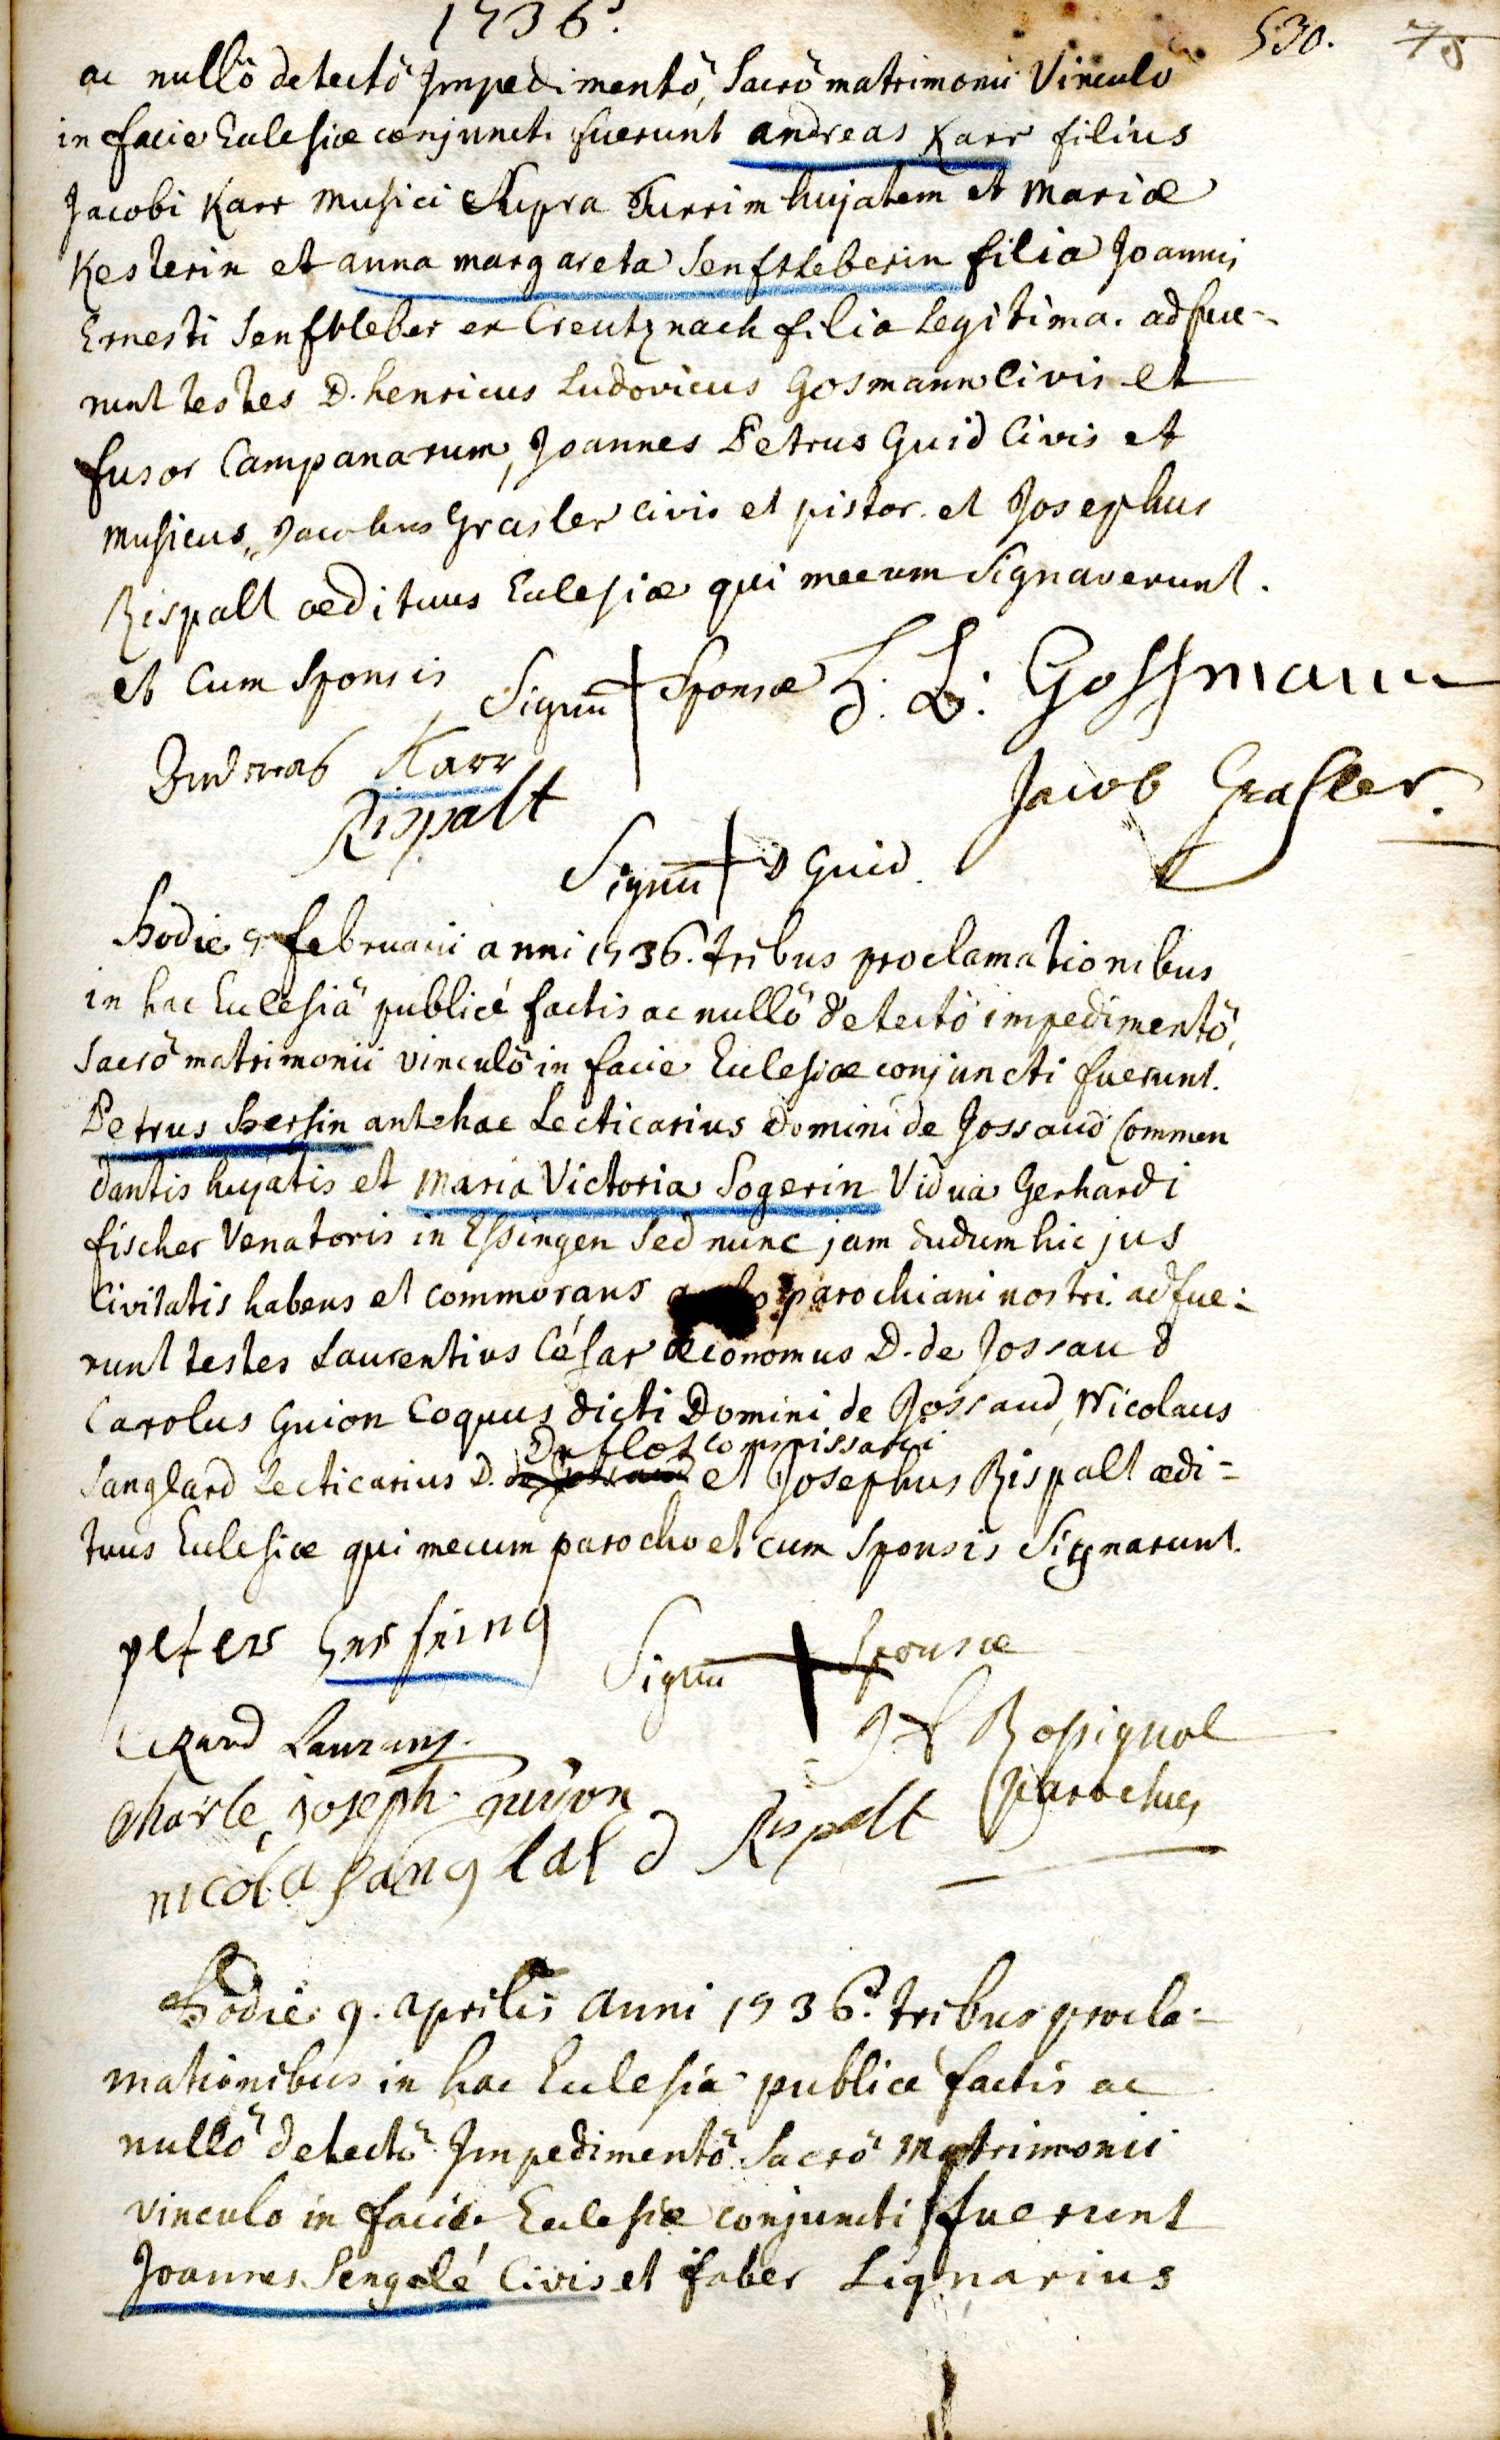 1736.
530. 78
ac nullô detectô Impedimentô, Sacrô matrimonii Vinculô
in facie Ecclesiæ conjuncti fuerunt andreas Karr filius
Jacobi Karr Musici Supra Turrim hujatem et Mariæ
Kesterin et anna margareta Senftleberin filia Joannis
Ernesti Senftleber ex Creutznach filia legitima. adfue-
runt testes D. henricus Ludovicus Gosmann Civis et
fusor Campanarum, Joannes Petrus Guid Civis et
Musicus, Jacobus Grasler civis et pistor. et Josephus
Rispalt ædituus Ecclesiæ qui mecum Signaverunt.
et Cum Sponsis Signū + Sponsæ H. L. Gossmann
Andreas Karr Jacob Grasler.
Rispalt
Signū + Guid.
hodie 9 februarii anni 1736. tribus proclamationibus
in hac Ecclesiâ publicé factis ac nullô detectô impedimentô,
Sacrô matrimonii vinculô in facie Ecclesiæ conjuncti fuerunt.
Petrus Hersin antehac Lecticarius Domini de Jossaud Commen
dantis hujatis et Maria Victoria Sogerin Vidua Gerhardi
fischer Venatoris in Essingen Sed nunc jam dudum hic jus
Civitatis habens et commorans parochiani nostri. adfue-
runt testes Laurentius César œconomus D. de Jossaud
Carolus Guion Coquus dicti Domini de Jossaud, Nicolaus
Duflot commissarii
Sanglard Lecticarius D. de Jossaud et Josephus Rispalt ædi-
tuus Ecclesiæ qui mecum parocho et cum Sponsis Signarunt.
peters Signū + Sponsæ
Laurans. Rossignol
Charle joseph guion Rispalt parochus
nicola sanglard
hodie 9. aprilis anni 1736. tribus procla-
mationibus in hac Ecclesia publicé factis ac
nullô detectô Impedimentô Sacrô Matrimonii
vinculo in facie Ecclesiæ conjuncti fuerunt
Joannes Sengelé Civis et faber Lignarius